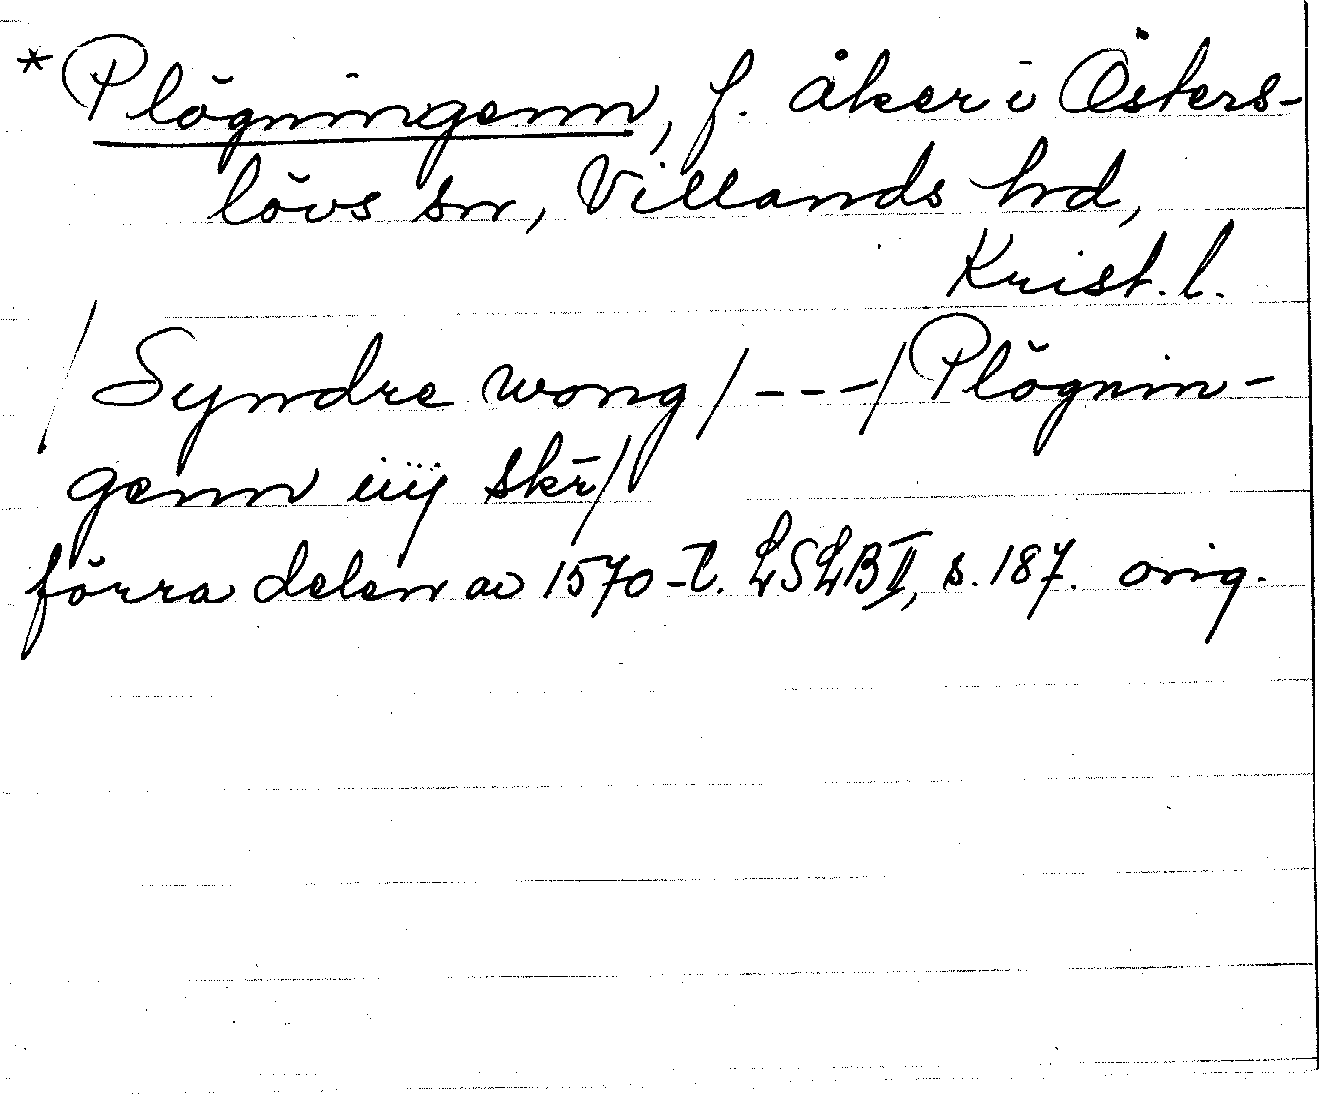 *Plögningenn, f. åker i Östers-
lövs sn, Villands hd,
Krist. l.
/ Syndre wong / --- / Plögnin-
genn iiij skr̄ /
förra delen av 1570-t. LSLB II, s. 187. orig.